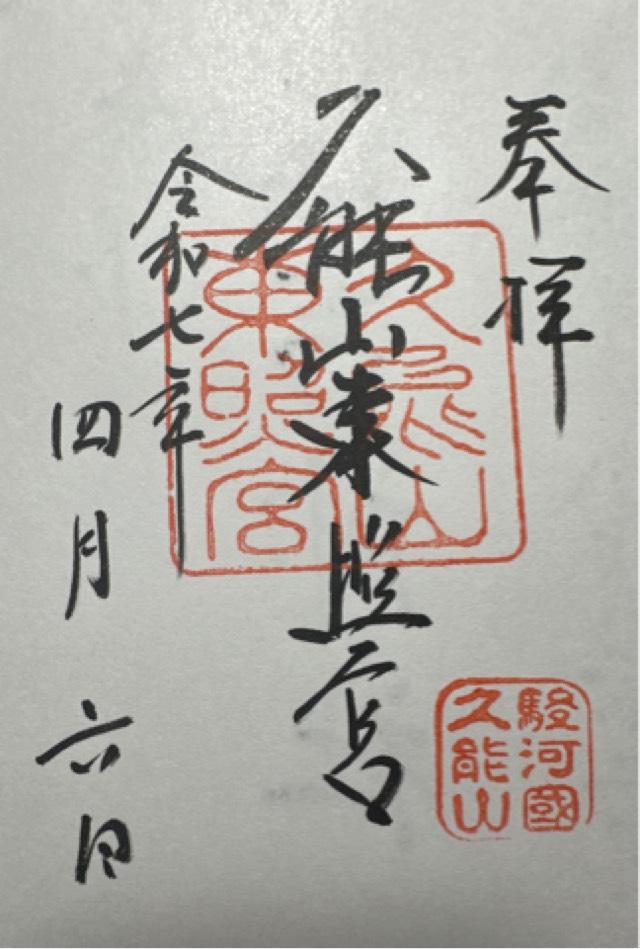 奉拝
久能山東照宮
令和七年
四月六日
久能山
東照宮
駿河國
久能山